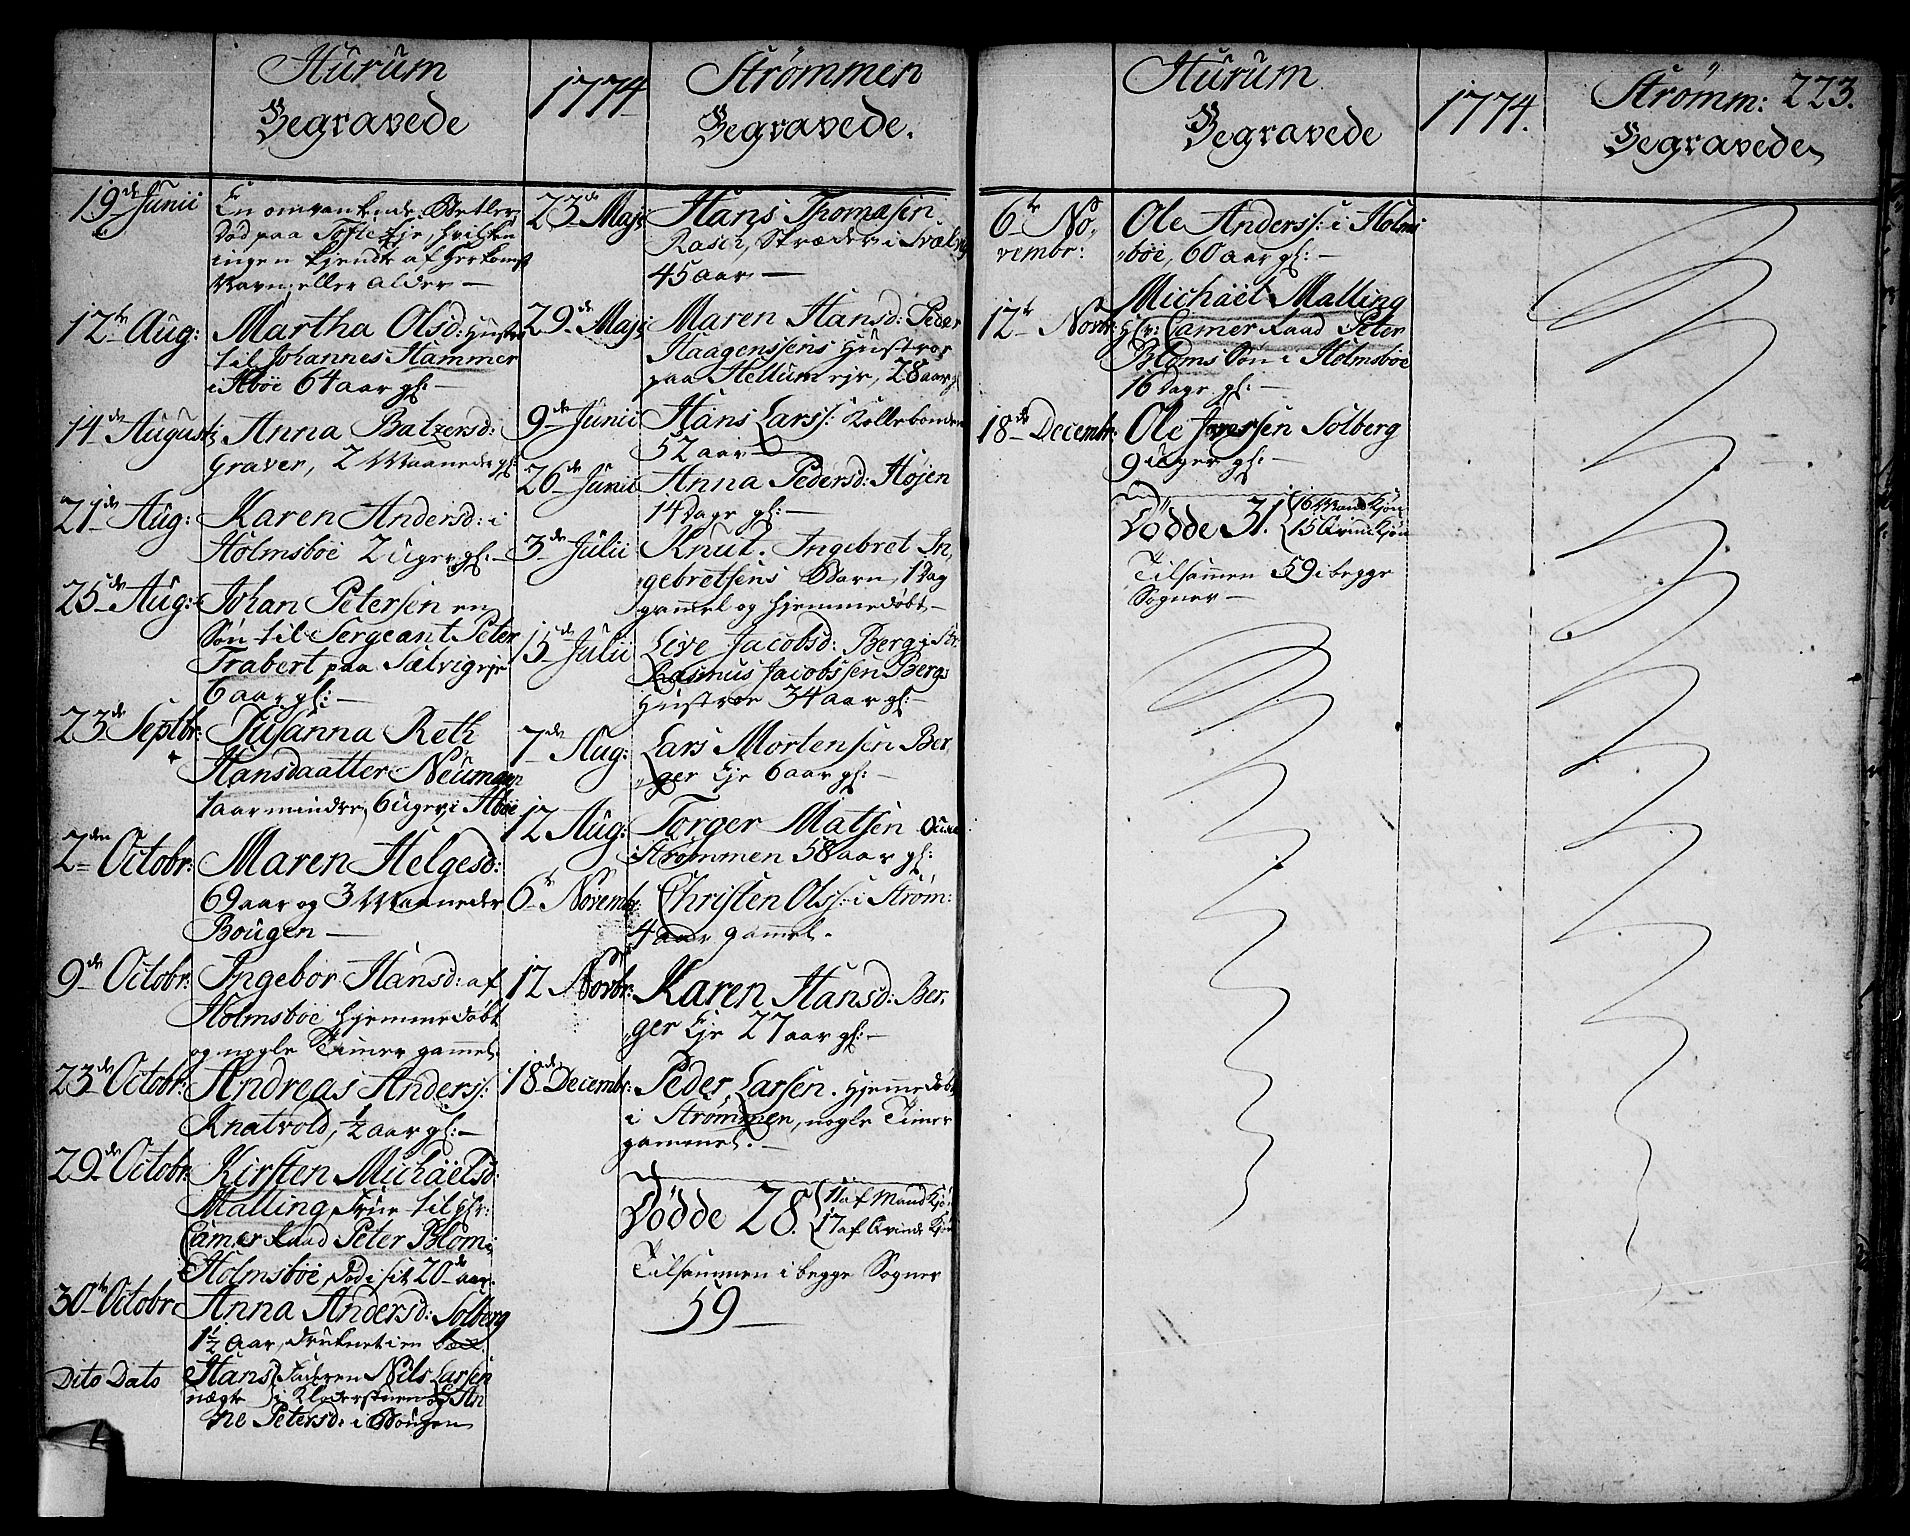 Hurum
Begravede
1774
Strømmen
Begravede.
19de Junii
En omvankende Betler,
Død paa Tofte Eje, hvilken
ingen kjendte af herkomst
Navn, eller Alder —
12te Aug:
Martha Olsd: Hustroe
til Johannes Hammer
i Åbøe 64 aar gl: —
14de Augusti
Anna Baltzersd:
Graver, 2 Maaneder gl:
21de Aug:
Karen Andersd: i
Holmsbøe 2 Uger gl: —
25de Aug:
Johan Petersen en
Søn til Sergeant Peter
Trabert paa Sælvig eje
6 aar gl: —
23de Septbr:
Susanna Reth
Hansdaatter Neumann
1 aar mindre 6 Uger i Åbøe
2den Octobr:
Maren Helgesd:
69 aar og 3 Maaneder
Bougen —
9de Octobr:
Ingebor Hansd: af
Holmsbøe hjemmedøbt
og nogle Timer gammel.
23de Octobr:
Andreas Anderss:
Knatvold, ½ aar gl: —
29de Octobr:
Kirsten Michaelsd:
Malling Frue til Hr:
Camer Raad Peter Blom i
Holmsbøe, Død i sit 20de aar.
30te Octobr
Anna Andersd: Solberg
1½ Aar, druknet i en
Dito Dato
Hans Faderen Nils Larsen
nægte i Kladerstuen og An
ne Petersd: i Bougen
23de Maji
Hans Thomæsen
Rasch, Stræder i Svælvig
45 aar —
29de Maji
Maren Hansd: Peder
Haagenssens Hustroe
paa Hellum eje, 28 aar gl
9de Junii
Hans Larss: Kollebonden
52 aar —
26de Junii
Anna Pedersd: Højen
14 Dage gl: —
3de Julii
Knut. Ingebret In,
gebretsens Barn, 1 Dag
gammel og hjemmedøbt —
15de Julii
Live Jacobsd: Berg i Str.
Rasmus Jacobssen Bergs
Hustroe 34 aar gl: —
7de Aug:
Lars Mortensen Ber,
ger Eje 6 aar gl: —
12 Aug:
Torger Matsen
i Strømmen 58 aar gl:
6te Novembr.
Christen Olss: i Strøm:
4 aar gammel.
12 Novbr:
Karen Hansd: Ber,
ger Eje 27 aar gl: —
18de Decembr:
Peder Larsen. Hjemmedøbt
i Strømmen, nogle Timer
gammel. —
Dødde 28. 11 af Mand Kjø:
17 af Qvinde Kjøn
Tilsammen i begge Sogner
59 —
Hurum
Begravede
1774.
Strømm: 223.
Begravede
6te No,
vembr:
Ole Anderss: i Holms
bøe, 60 aar gl: —
12te Novbr:
Michael Malling
Hr: Camer Raad Peter
Bloms Søn i Holmsbøe
16 Dage gl: —
18de Decembr:
Ole Joressen Solberg
9 Uger gl: —
Dødde 31. 16 Mand Kjøn
15 Qvinde Kjøn
Tilsammen 59 i begge
Sogner —